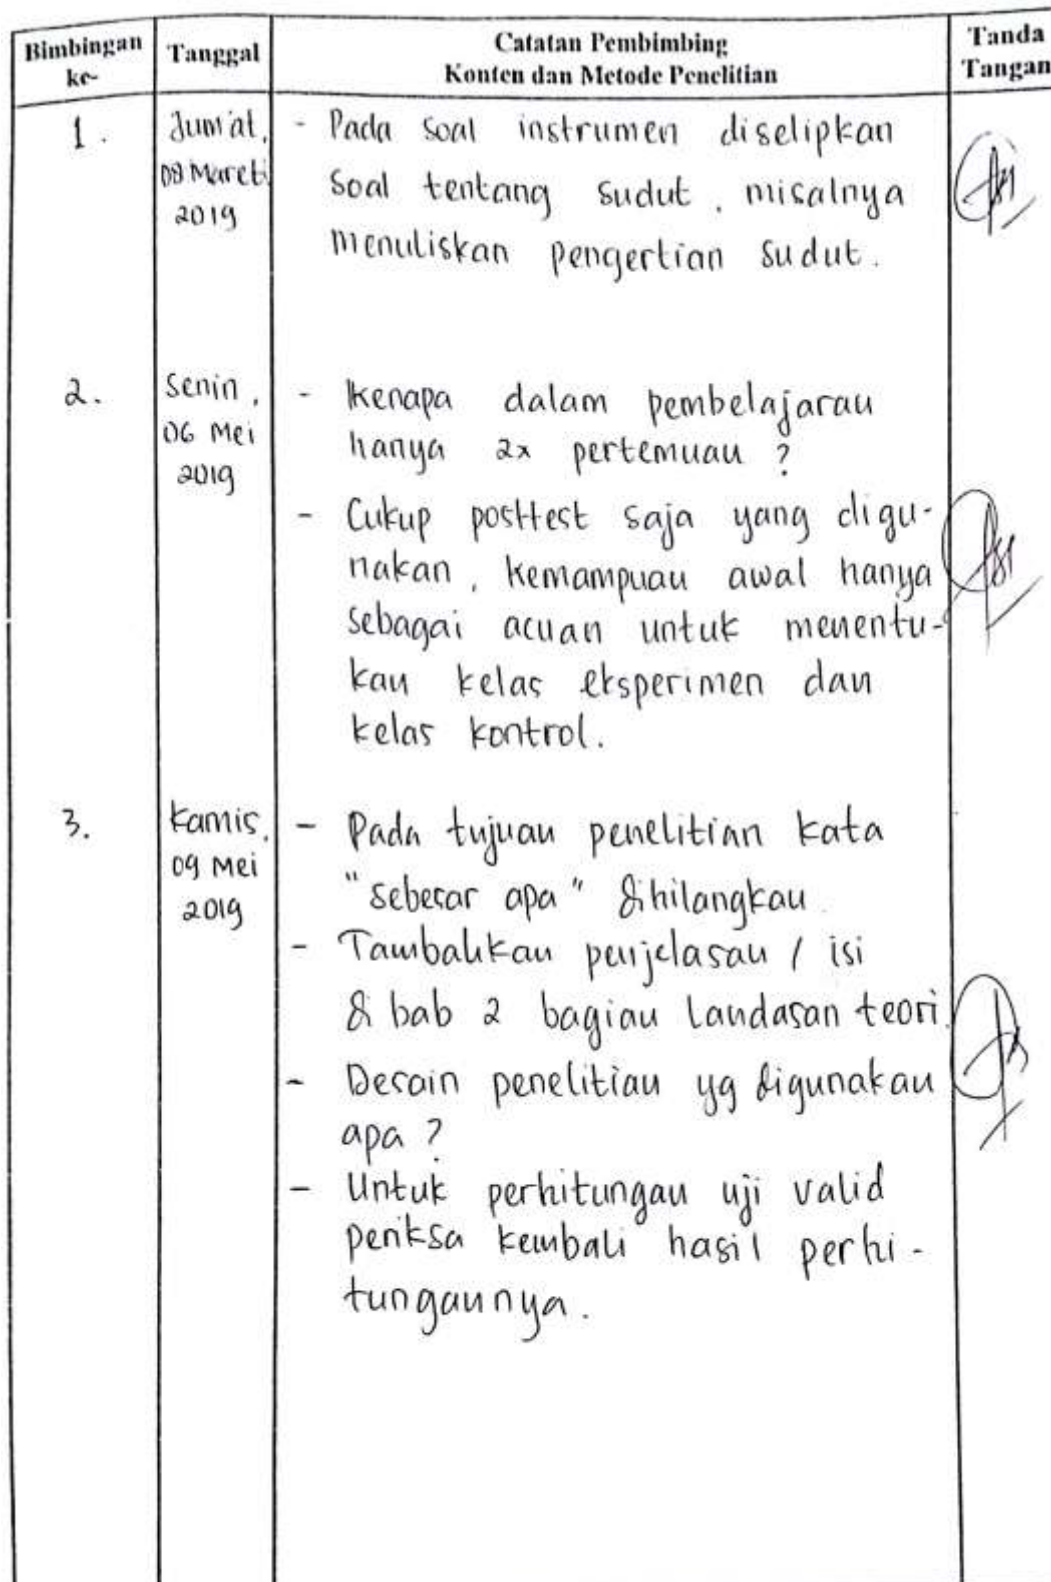 Bimbingan ke-
Tanggal
Catatan Pembimbing
Konten dan Metode Penelitian
Tanda Tangan
1.
Jum'at,
08 Maret
2019
- Pada soal instrumen diselipkan
soal tentang sudut, misalnya
menuliskan pengertian sudut.
2.
Senin,
06 Mei
2019
- Kenapa dalam pembelajaran
hanya 2x pertemuan ?
- Cukup posttest saja yang digu-
nakan, kemampuan awal hanya
sebagai acuan untuk menentu-
kan kelas eksperimen dan
kelas kontrol.
3.
Kamis,
09 Mei
2019
- Pada tujuan penelitian kata
"sebesar apa" dihilangkan.
- Tambahkan penjelasan / isi
di bab 2 bagian landasan teori.
- Desain penelitian yg digunakan
apa ?
- Untuk perhitungan uji valid
periksa kembali hasil perhi-
tungannya.